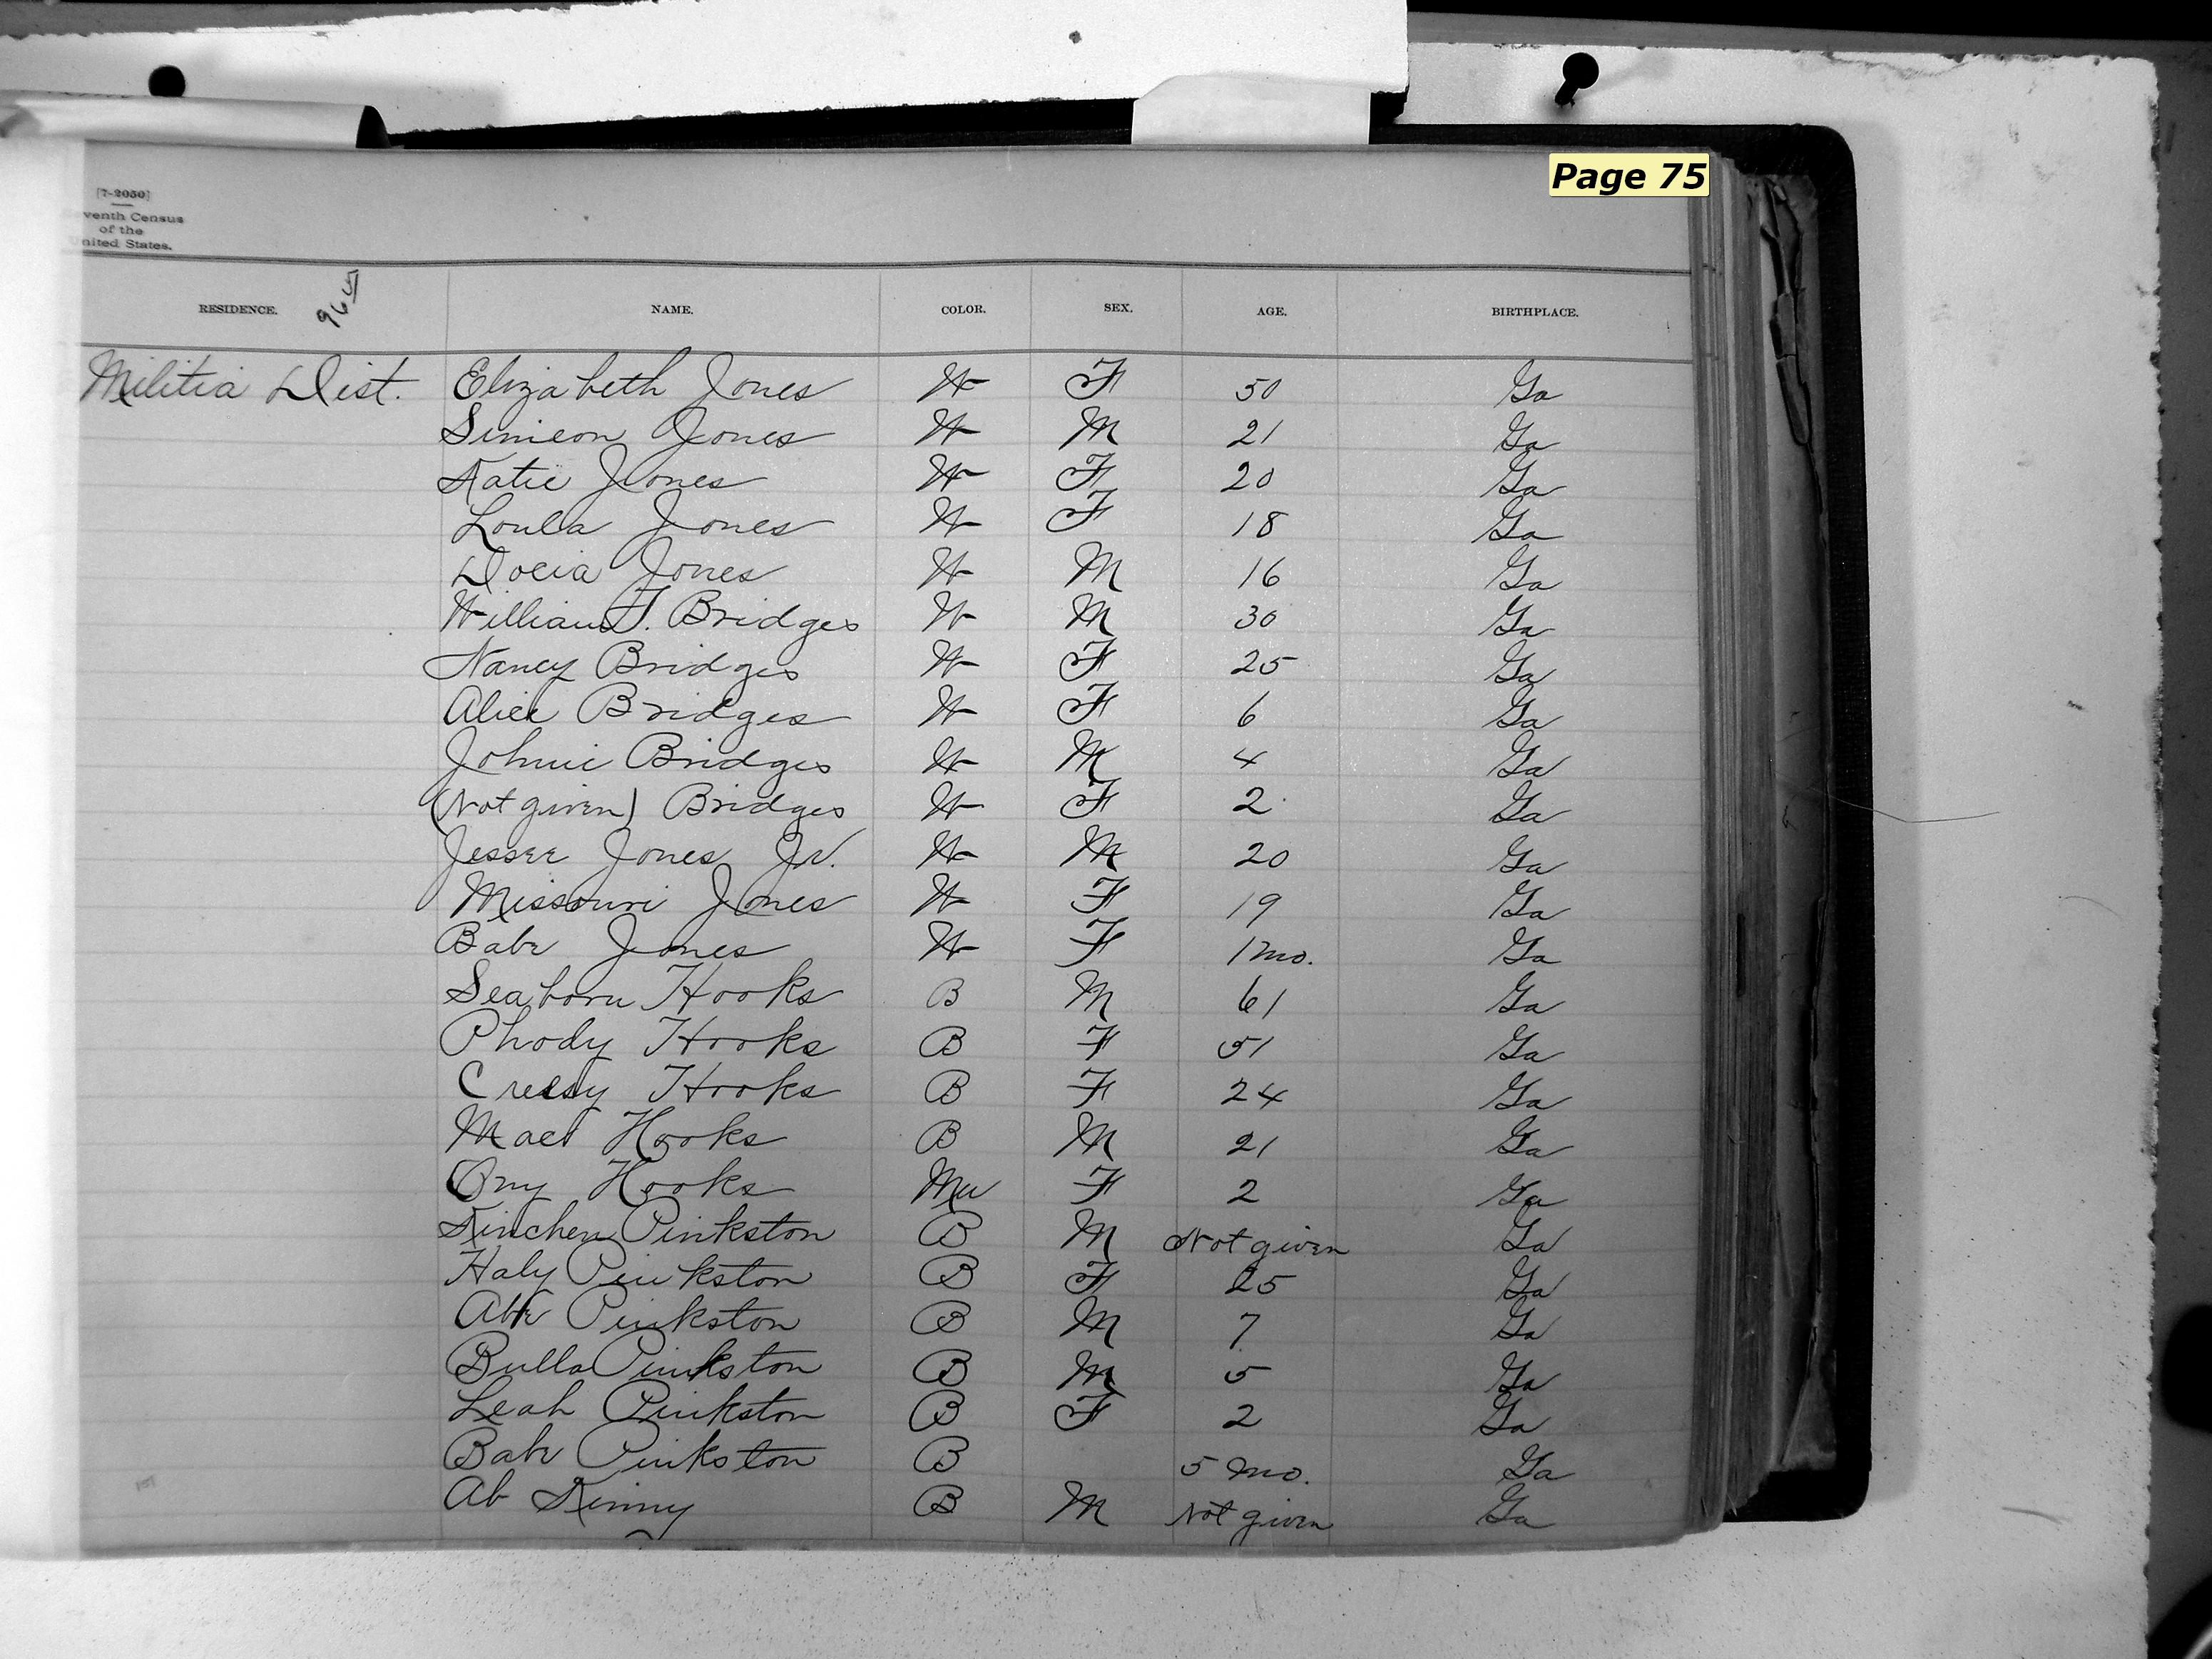 Page 75
[7-2050]
venth Census
of the
nited States.
RESIDENCE. NAME. COLOR. SEX. AGE. BIRTHPLACE.
Militia Dist. Elizabeth Jones W F 50 Ga
Simeon Jones W M 21 Ga
Katie Jones W F 20 Ga
Loula Jones W F 18 Ga
Docia Jones W M 16 Ga
William F. Bridges W M 30 Ga
Nancy Bridges W F 25 Ga
Alice Bridges W F 6 Ga
Johnie Bridges W M 4 Ga
(Not given) Bridges W F 2 Ga
Jesse Jones Jr. W M 20 Ga
Missouri Jones W F 19 Ga
Babe Jones W F 1 mo. Ga
Seaborn Hooks B M 61 Ga
Rhody Hooks B F 51 Ga
Cressy Hooks B F 24 Ga
Hooks B M 21 Ga
Ony Hooks Mu F 2 Ga
Kinchen Pinkston B M Not given Ga
Haly Pinkston B F 25 Ga
Abe Pinkston B M 7 Ga
Bulla Pinkston B M 5 Ga
Leah Pinkston B F 2 Ga
Babe Pinkston B 5 mo. Ga
Ab Kinny B M Not given Ga